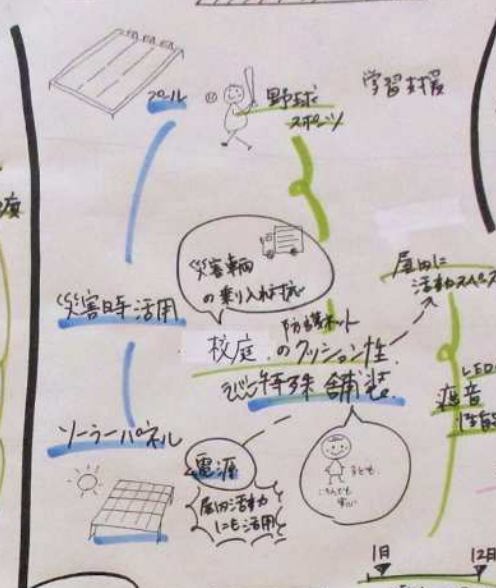 プール
野球
スポーツ
学習支援
災害車輌
の乗り入れ対応
屋内に
活動スペース
災害時活用
防護ネット
校庭の クッション性
特殊舗装
LED
遮音
性能
ソーラーパネル
電源
屋内活動
にも活用
子ども
1日
12日